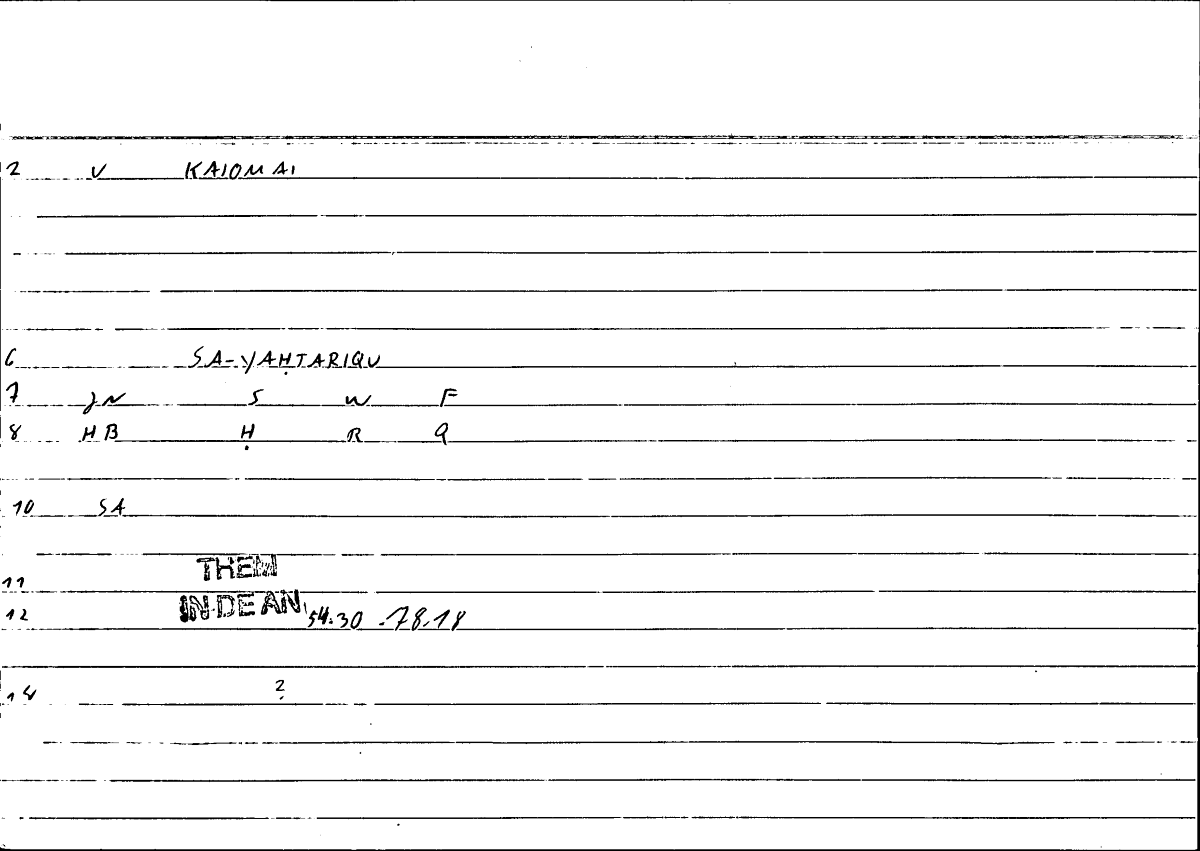 2 V KAIOMAI
6 SA-YAḤTARIQU
7 JN S W F
8 HB Ḥ R Q
10 SA
11 THEM
12 IN DE AN. 54.30 - 78.18
14 2